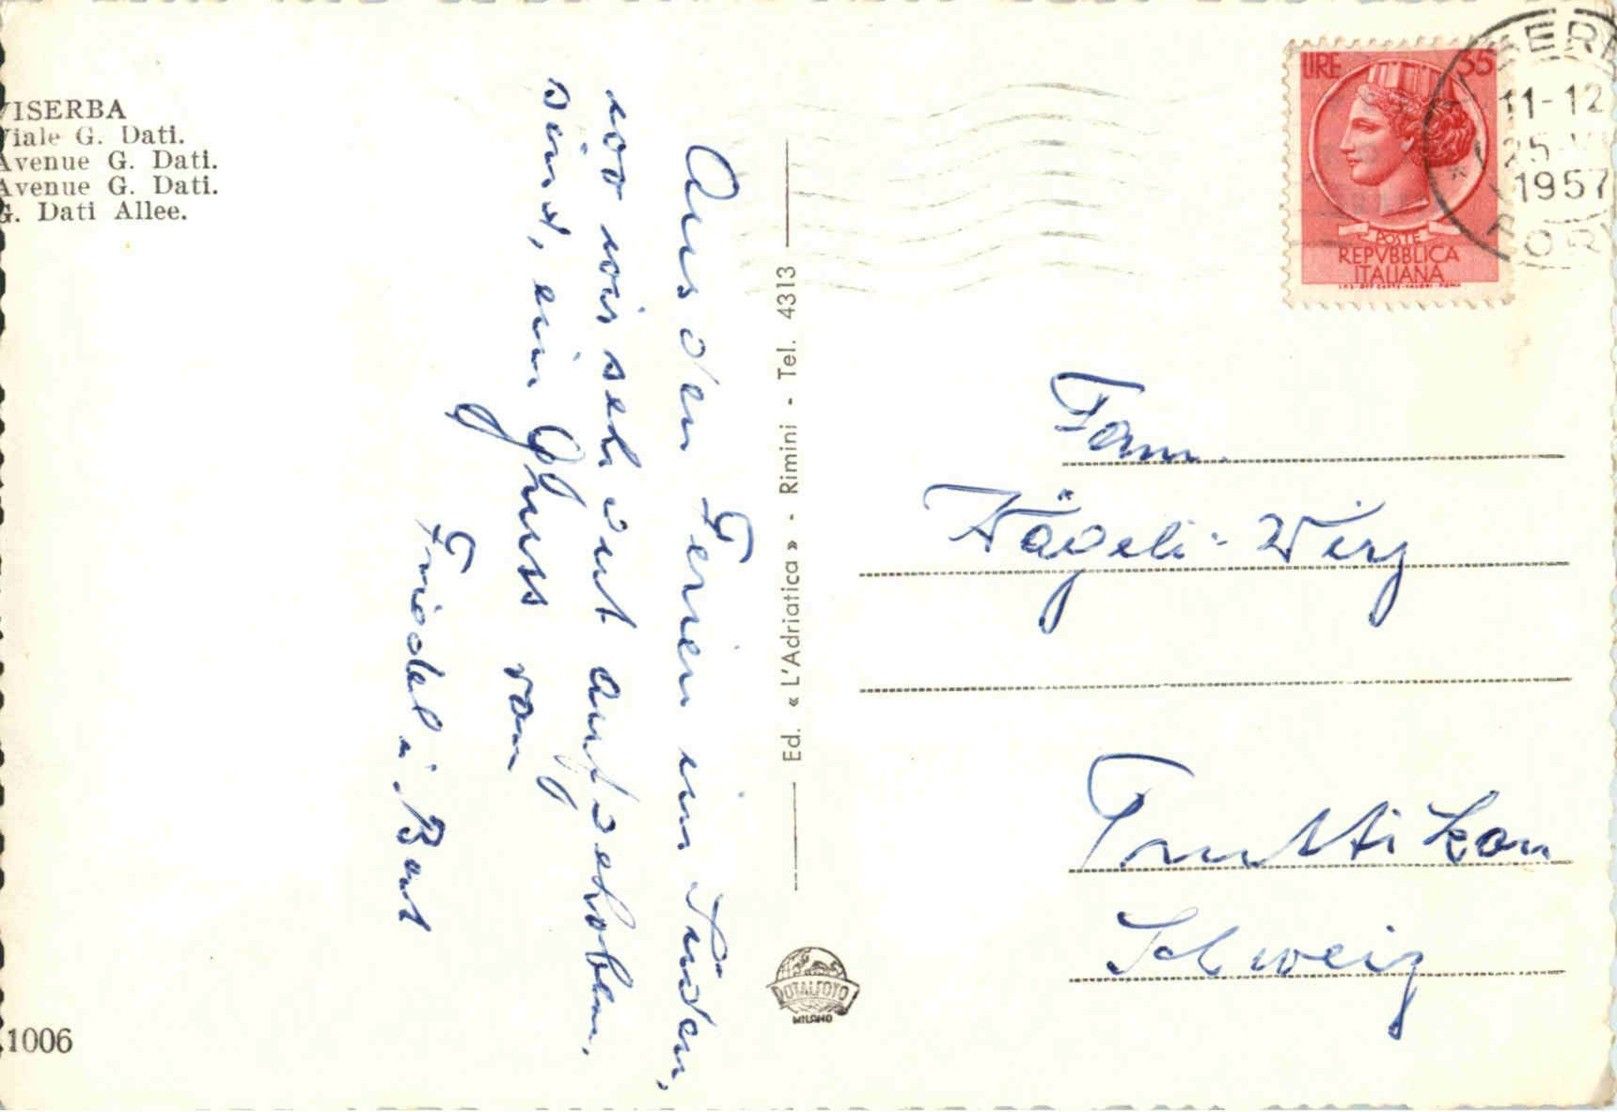 VISERBA
Viale G. Dati.
Avenue G. Dati.
Avenue G. Dati.
G. Dati Allee.
Aus den Ferien im Süden,
wo wir sehr gut aufgehoben
sind, ein Gruss von
Friedel u. Bert
1006
Ed. « L'Adriatica » - Rimini - Tel. 4313
TOTALFOTO
MILANO
LIRE 35
POSTE
REPVBBLICA
ITALIANA
11-12
25
1957
Fam.
Nägeli-Wirz
Truttikon
Schweiz